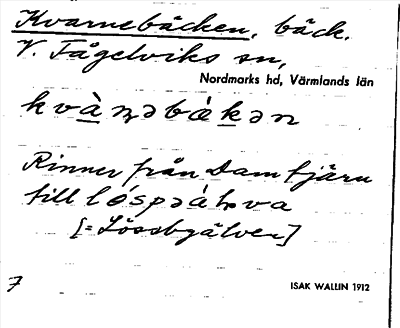 Kvarnebäcken, bäck.
V. Fågelviks sn,
Nordmarks hd, Värmlands län
Rinner från Damtjärn
till
[= Lössbyälven]
7
ISAK WALLIN 1912